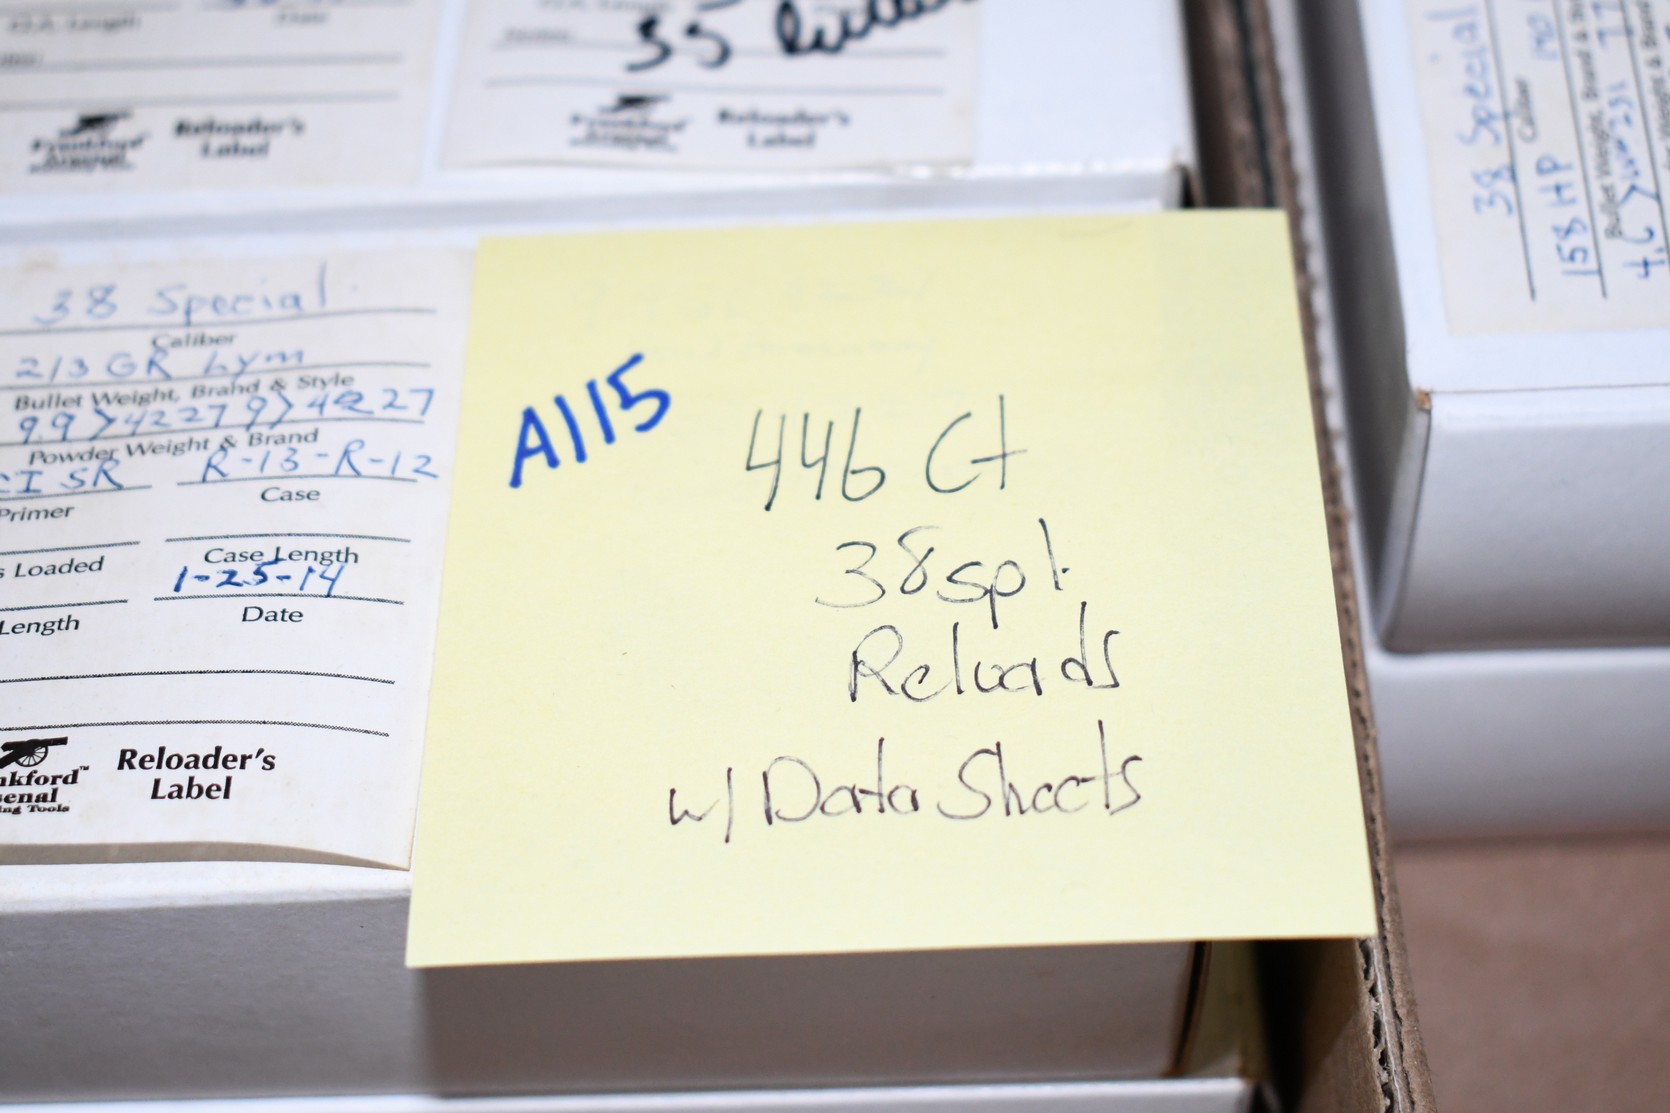 O.A. Length
Date
Frankford
Arsenal
Reloader's
Label
Notes:
35
Frankford
Arsenal
Reloader's
Label
38 Special
Caliber
213 GR Lym
Bullet Weight, Brand & Style
9.9 > 4227 9 > 4227
Powder Weight & Brand
CI SR R-13-R-12
Primer
Case
s Loaded
Case Length
1-25-14
Length
Date
nkford™
senal
ng Tools
Reloader's
Label
A115
446 Ct
38 spl.
Reloads
w/ Data Sheets
38 Special
Caliber
158 HP
Bullet Weight, Brand &
4.6 > WW 231
Weight & Brand